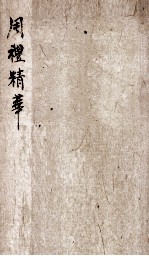 周禮精華